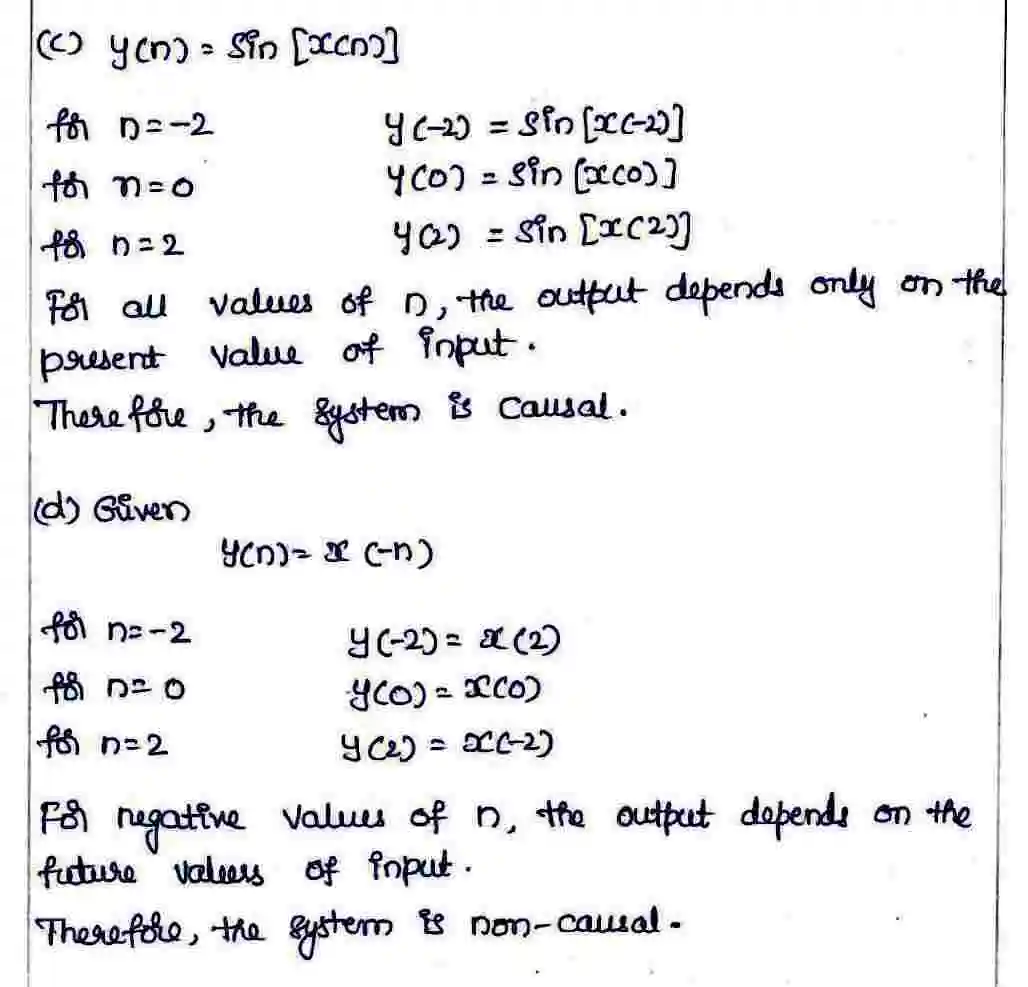 (c) y(n) = sin [x(n)]
for n=-2 y(-2) = sin [x(-2)]
for n=0 y(0) = sin [x(0)]
for n=2 y(2) = sin [x(2)]
For all values of n, the output depends only on the
present value of input.
Therefore, the system is causal.
(d) Given
y(n) = x(-n)
for n=-2 y(-2) = x(2)
for n=0 y(0) = x(0)
for n=2 y(2) = x(-2)
For negative values of n, the output depends on the
future values of input.
Therefore, the system is non-causal.